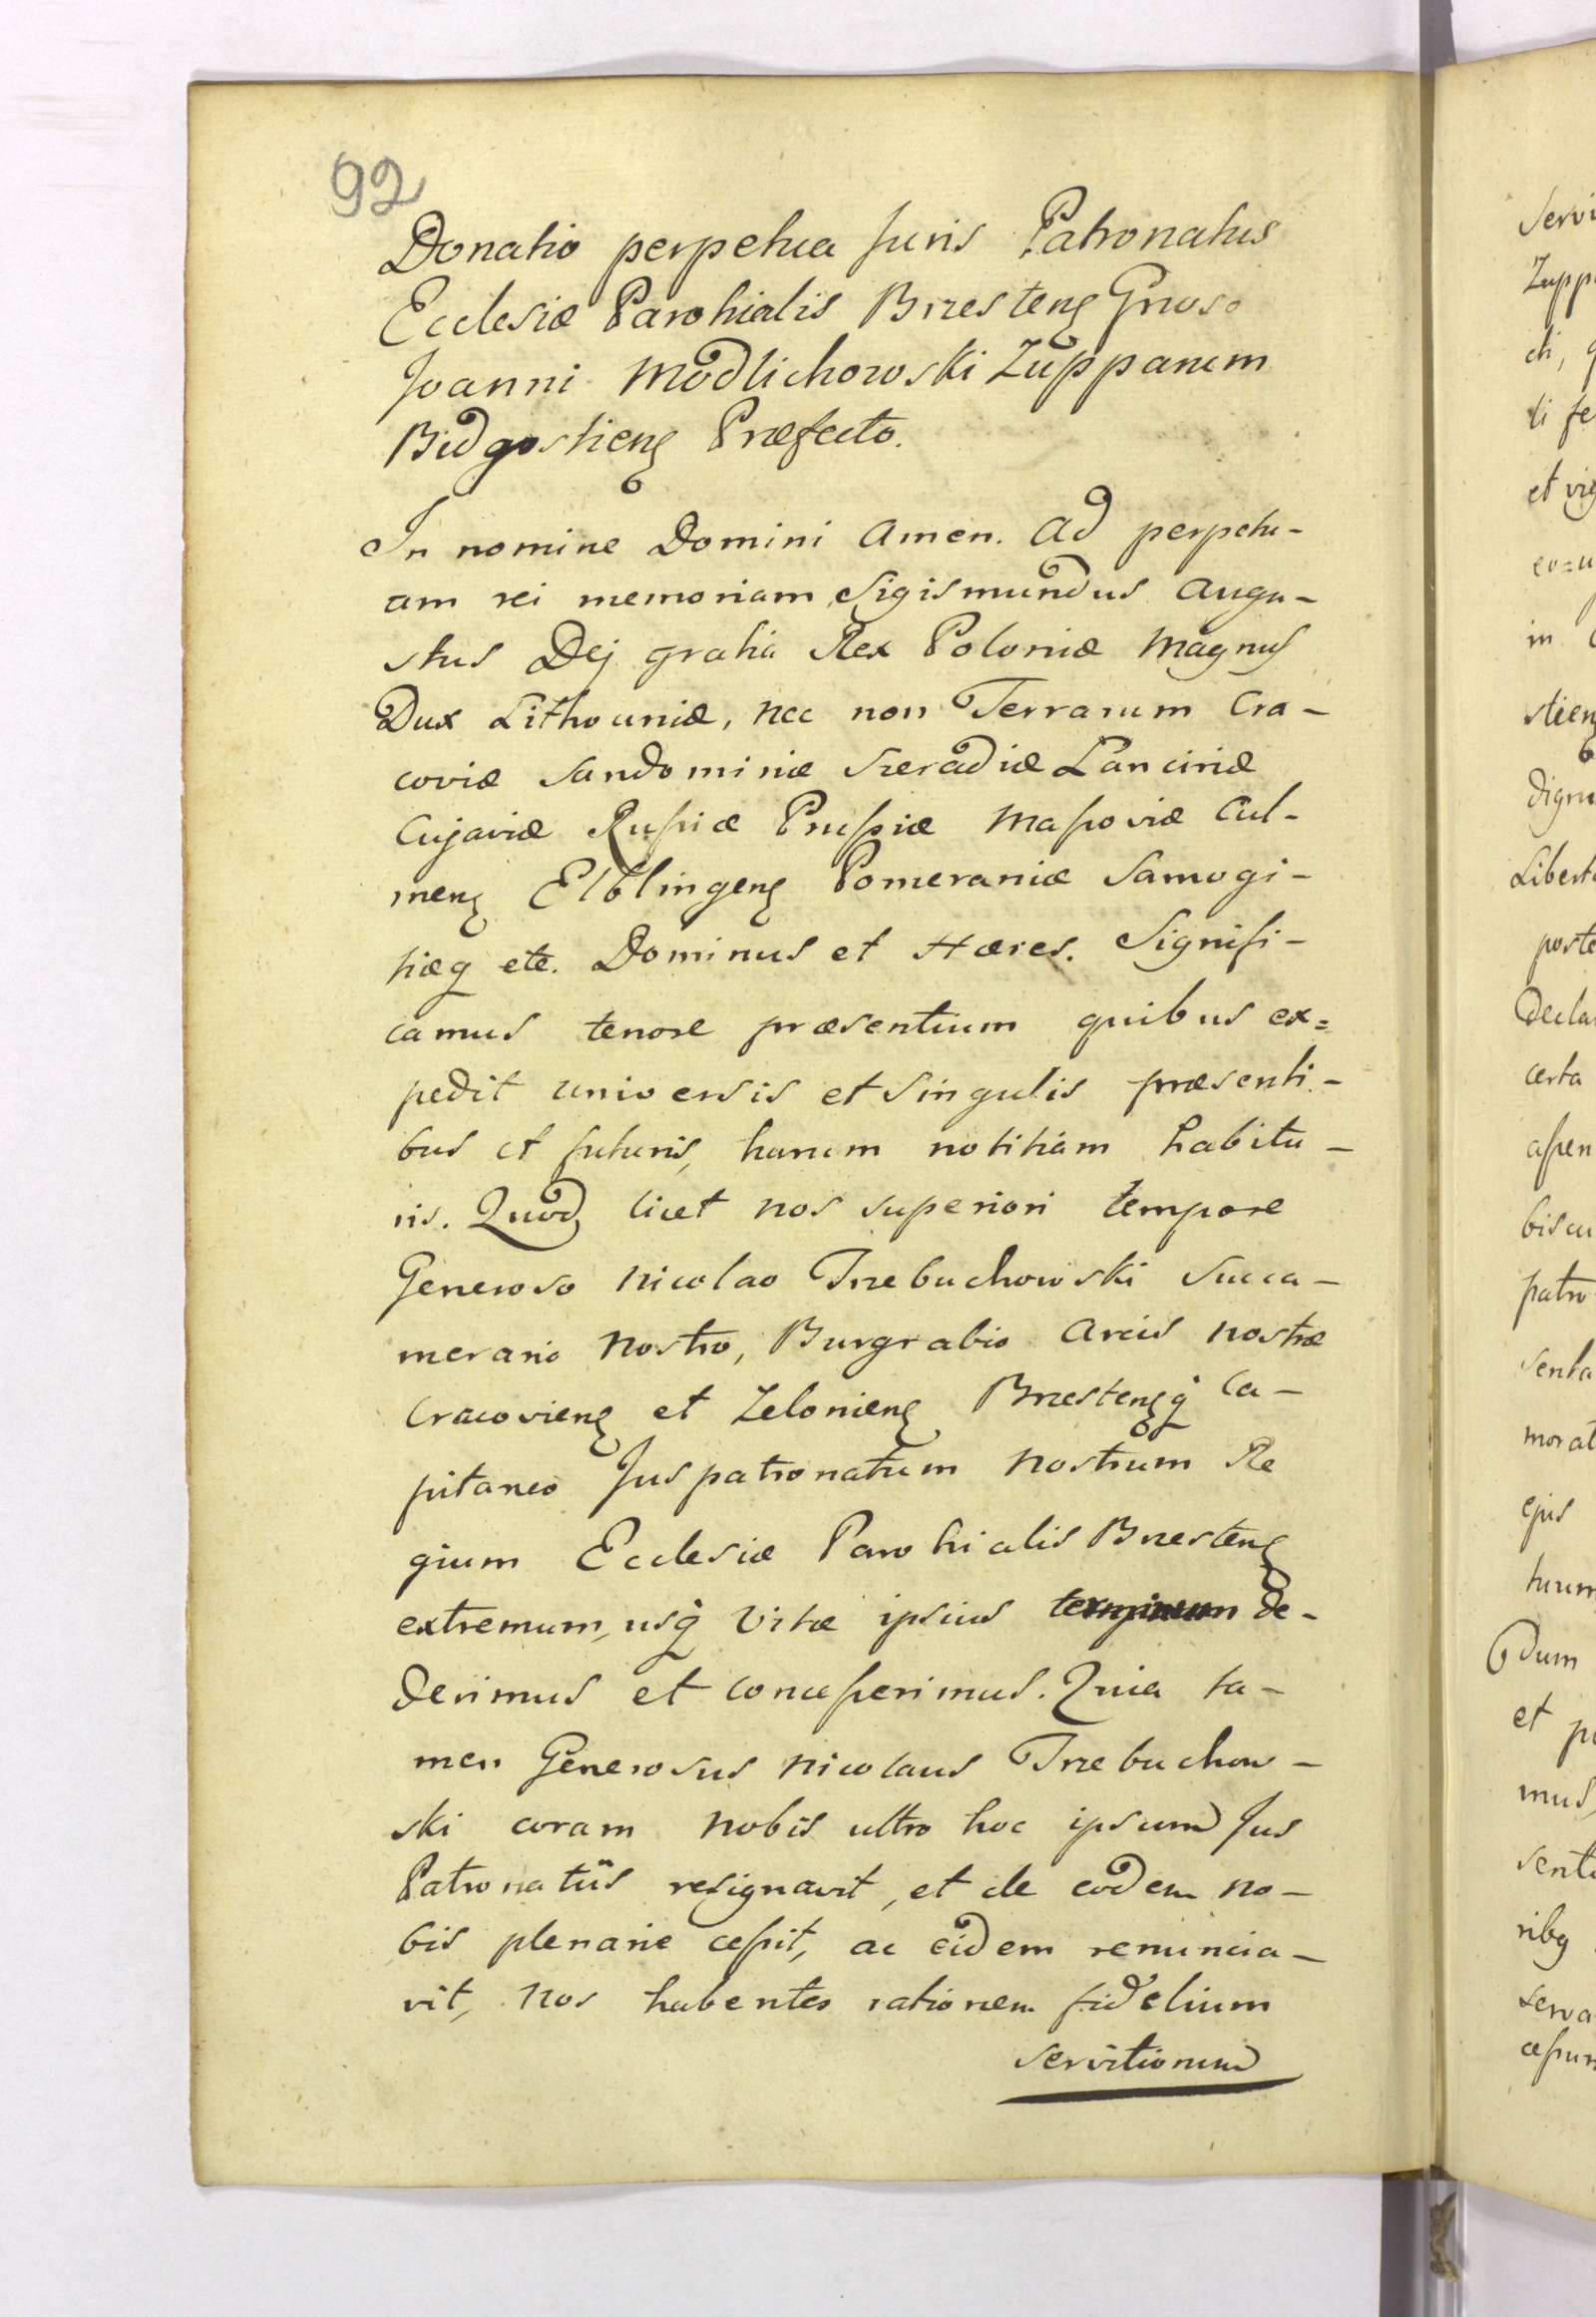 92
Donatio perpetua Juris Patronatus
Ecclesiæ Parohialis Brzesteng Gnoso
Joanni Modlichowski Zupparum
Bidgostieng Præfecto.
In nomine Domini Amen. Ad perpetu-
am rei memoriam Sigismundus Augu-
stus Dej gratia Rex Poloniæ Magnus
Dux Lithvaniæ, nec non Terrarum Cra-
coviæ Sandomiriæ Szeradiæ Lanciciæ
Cujaviæ Rußiæ Prußiæ Maßoviæ Cul-
meng Elblingeng Pomeraniæ Samogi-
tiæq etc. Dominus et Hæres. Signifi-
camus tenore præsentium quibus ex=
pedit universis et singulis præsenti-
bus et futuris, harum notitiam habitu-
ris. Quod, licet nos superiori tempore
Generoso Nicolao Trzebuchowski Succa-
merario nostro, Burgrabio Arcis nostræ
Cracovieng et Zelonieng Brzestengq Ca-
pitaneo Juspatronatum nostrum Re
gium Ecclesiæ Parohialis Brzesteng
extremum, usq Vitæ ipsius terminum de-
derimus et conceßerimus. Quia ta-
men Generosus Nicolaus Trzebuchow-
ski coram nobis ultro hoc ipsum Jus
Patronatûs resignavit, et de eodem no-
bis plenarie ceßit, ac eidem renuncia-
vit, nos habentes rationem fidelium
servitiorum
servi
Zupp
chi,
li fe
et vig
in
stien
dign
Libert
poste
Decla
certa
aßen
bis cu
patro
senta
morat
ejus
dum
et p
mus,
sent
ribq
serva